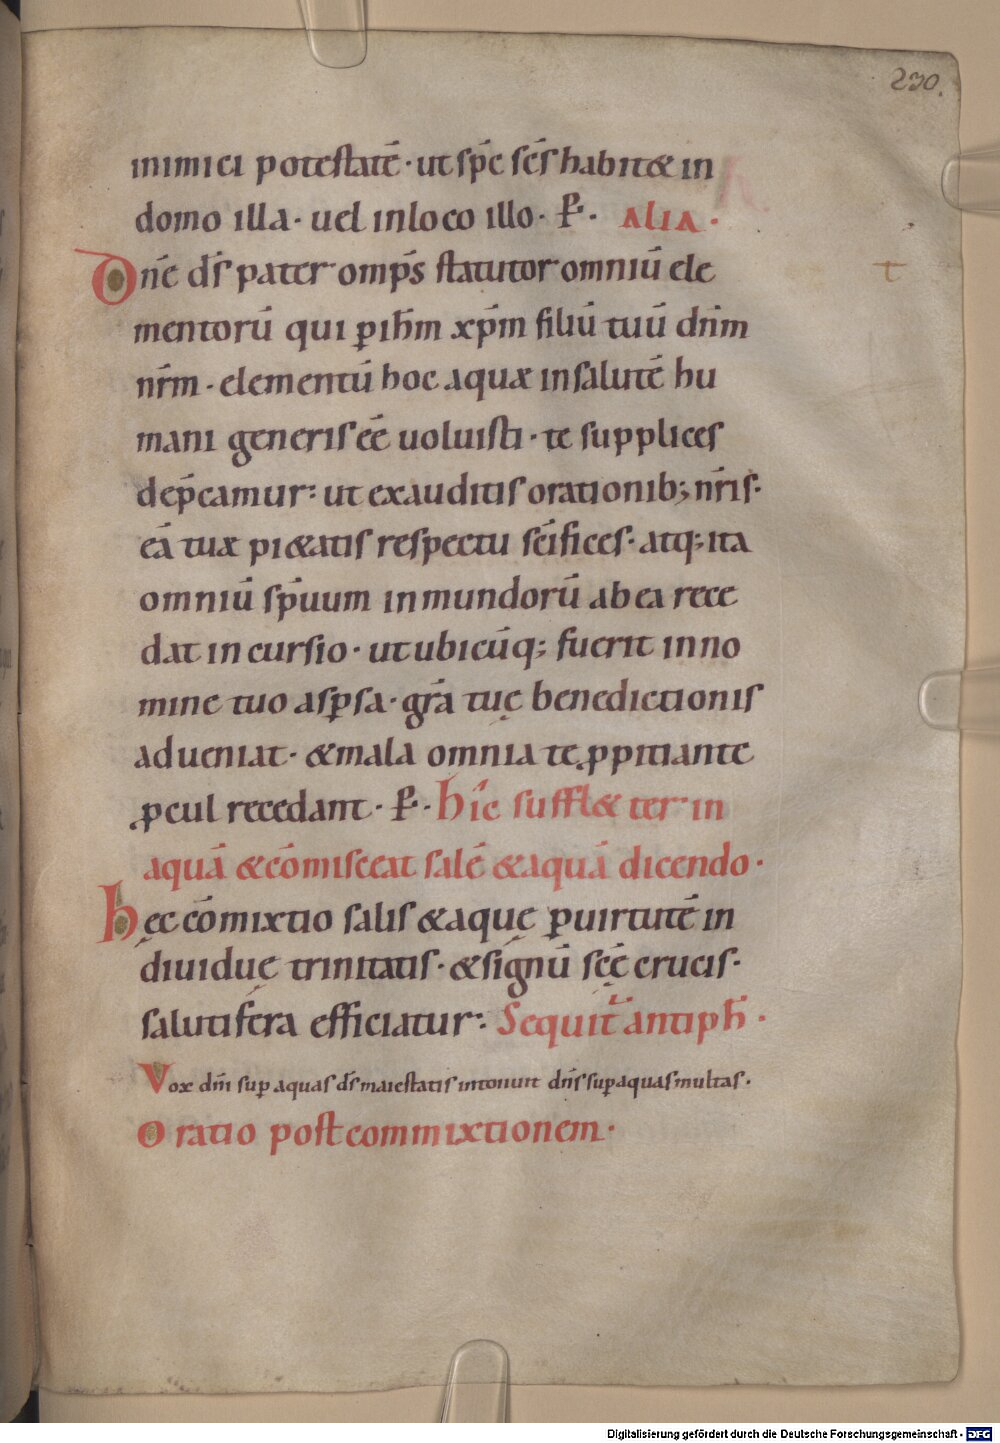 230.
inimici potestatē · ut sp̄c sc̄s habit& in
domo illa · uel inloco illo · P̄ · ALIA ·
Dn̄e d̄s pater omp̄s statutor omniū ele
mentorū qui p̄ ih̄m xp̄m filiū tuū dn̄m
nr̄m · elementū hoc aquæ insalutē hu
mani generis eē uoluisti · te supplices
dep̄camur: ut exauditis orationib; nr̄is ·
eā tuæ pi&atis respectu sc̄ifices · atq; ita
omniū sp̄uum inmundorū ab ea rece
dat incursio · ut ubicūq; fuerit inno
mine tuo asp̄sa · gr̄a tuę benedictionis
adueniat · &mala omnia te ꝓpitiante
ꝓcul recedant · P̄ · hic suffl& ter in
aquā &cōmisceat salē &aquā dicendo ·
hęc cōmixtio salis &aquę ꝑuirtutē in
diuiduę trinitatis · &signū sc̄ę crucis ·
salutifera efficiatur: Sequit̄ antiph̄ ·
Vox dn̄i sup aquas d̄s maiestatis intonuit dn̄s sup aquas multas ·
Oratio post commixtionem ·
t
Digitalisierung gefördert durch die Deutsche Forschungsgemeinschaft - DFG